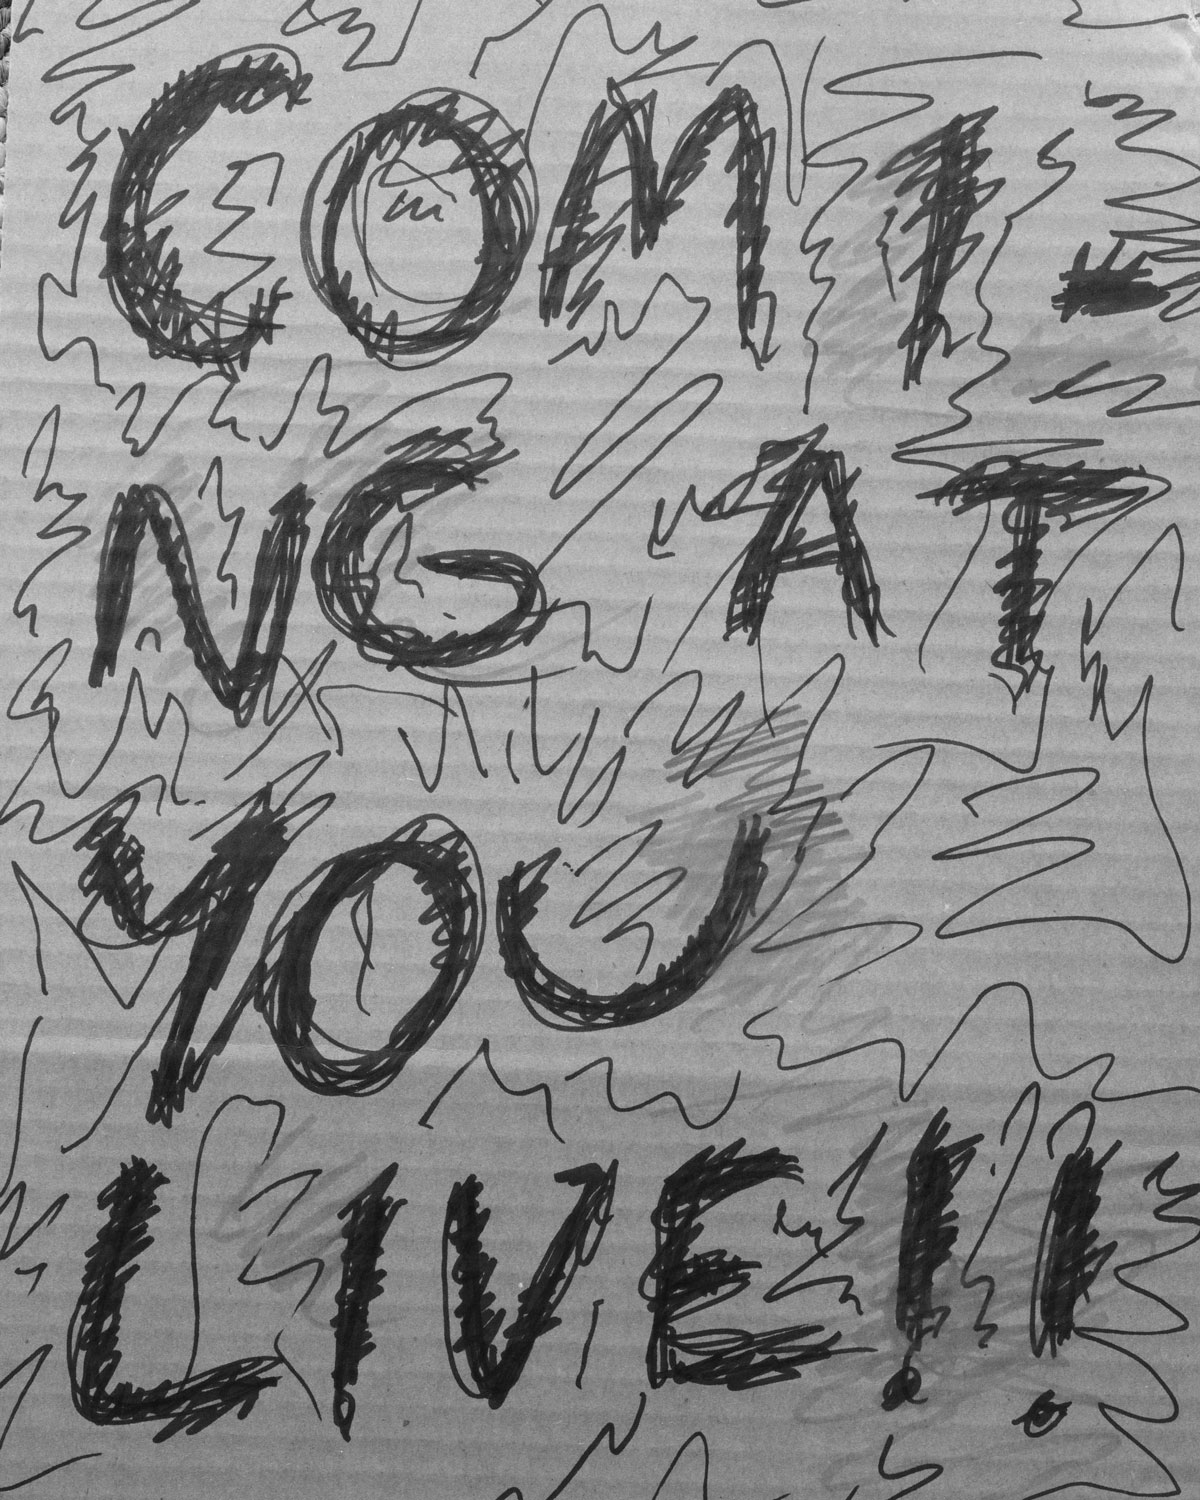 COMI-
NG AT
YOU
LIVE!!